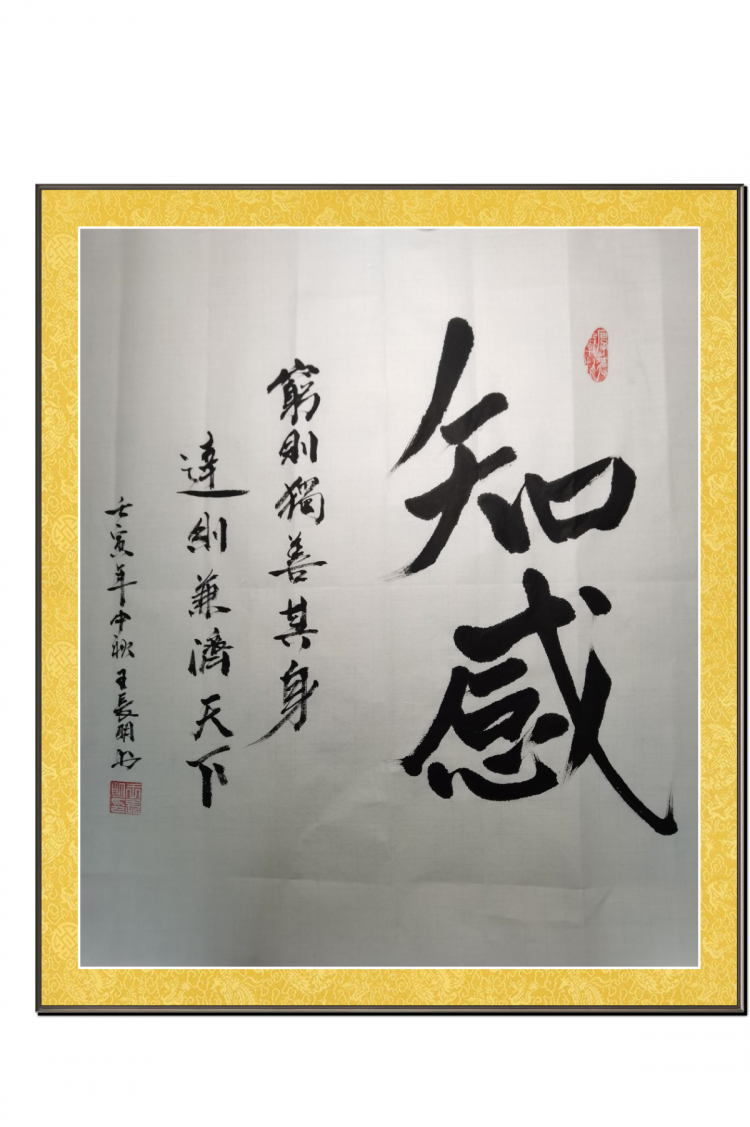 知感
窮則獨善其身
達則兼濟天下
壬寅年中秋王長明書